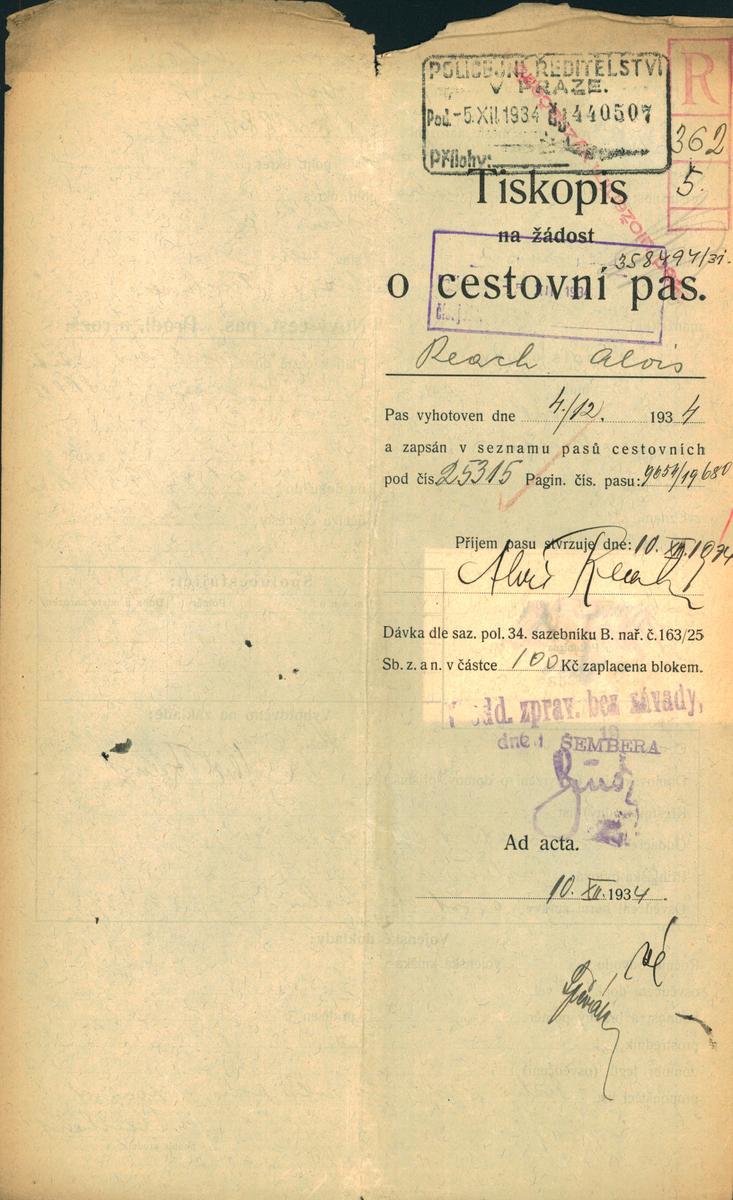 POLICEJNÍ ŘEDITELSTVÍ
V PRAZE.
Pod. -5.XII.1934 Čís. 440507
Přílohy:
R
362
5.
Tiskopis
na žádost
358497/31.
o cestovní pas.
čís. j.
Reach Alois
Pas vyhotoven dne 4./12. 1934
a zapsán v seznamu pasů cestovních
pod čís. 25315 Pagin. čís. pasu: 9654/19680
Příjem pasu stvrzuje dne: 10. XII. 1934
Alois Reach
Dávka dle saz. pol. 34. sazebníku B. nař. č. 163/25
Sb. z. a n. v částce 100 Kč zaplacena blokem.
odd. zprav. bez závady,
dne 19
ŠEMBERA
Ad acta.
10. XII. 1934